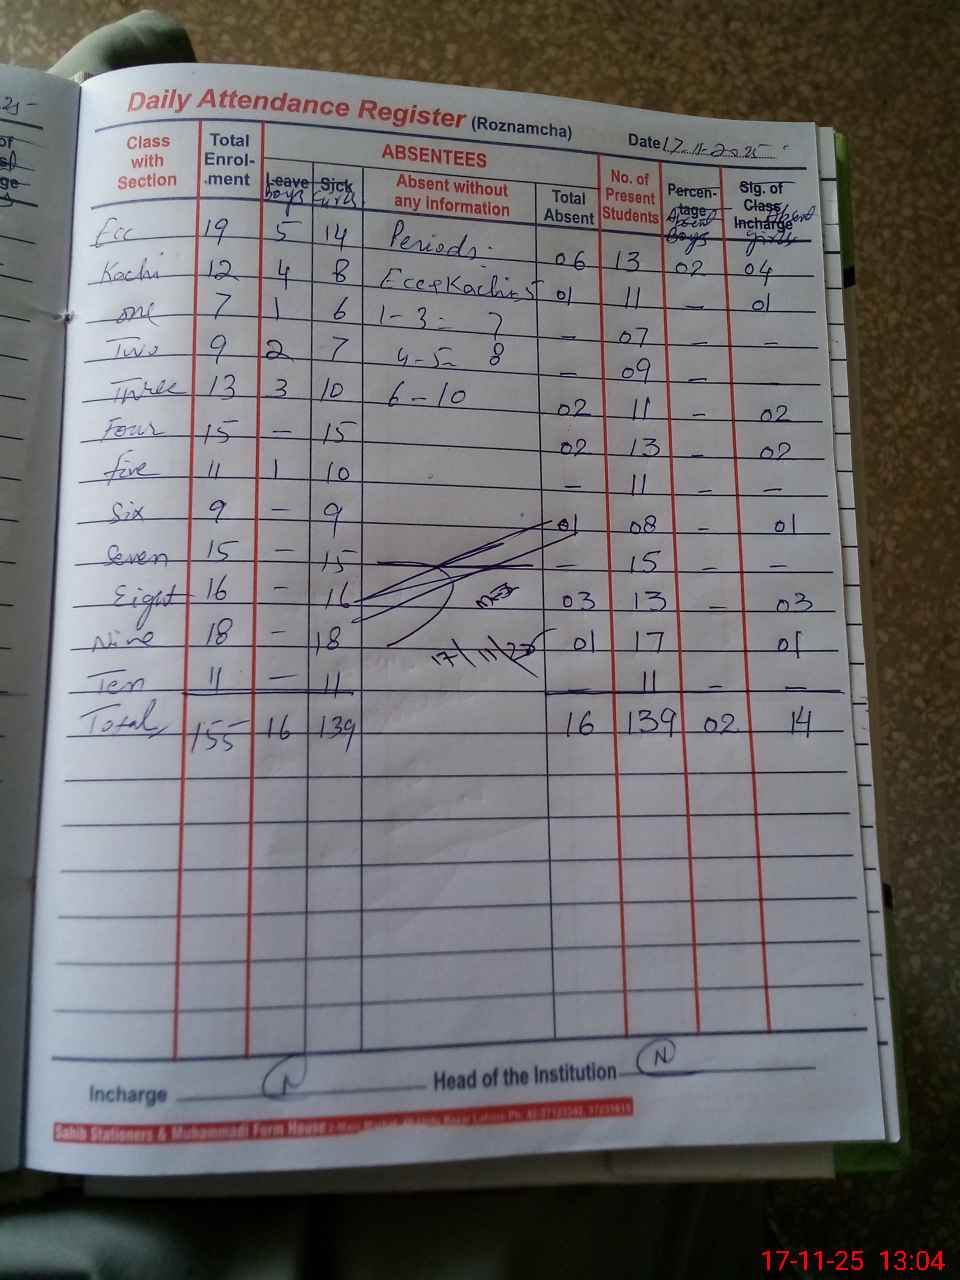 Daily Attendance Register (Roznamcha)
Date 17-11-2025
Class with Section Total Enrol-ment ABSENTEES No. of Present Students Percen-tage Sig. of Class Incharge
Leave Sick Absent without any information Total Absent
boys Girls Absent Boys Absent girls
Ecc 19 5 14 Periods. 06 13 02 04
Kachi 12 4 8 Ecc+Kachi-5 01 11 - 01
one 7 1 6 1-3= 7 - 07 - -
Two 9 2 7 4-5= 8 - 09 -
Three 13 3 10 6-10 02 11 - 02
Four 15 - 15 02 13 - 02
five 11 1 10 - 11 - -
Six 9 - 9 01 08 - 01
Seven 15 - 15 - 15 - -
Eight 16 - 16 03 13 - 03
Nine 18 - 18 17/11/25 01 17 01
Ten 11 - 11 - 11 - -
Total 155 16 139 16 139 02 14
Incharge Head of the Institution
Sahib Stationers & Muhammadi Form House
17-11-25 13:04